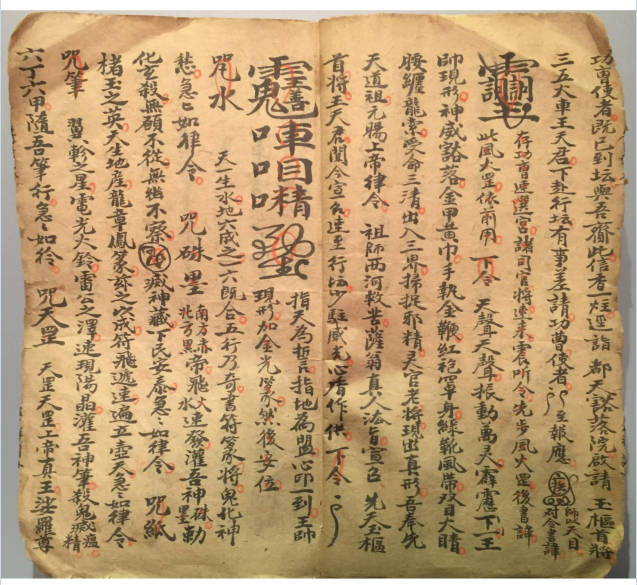 功曹使者既已到坛與吾齎此信香一炷逕詣 都天豁落院啟請 玉樞首將
三五火車王天君下赴行坛有事差請功曹使者 至報應
师以天目
对令書諱
存功曹逕選宮諸司官將速来震所令先步風火罡後書諱
此風火罡依前用 下令 天聲天聲振動萬灵霹靂下王
師現形神威豁落金甲黄巾手執金鞭紅袍罩身綠靴風帶双目大睛
腰纏龍索受命三清出入三界捉邪精灵官老將現出真形吾奉先
天道祖元上帝律令 祖師西河救苦薩翁真人法旨宣召 先天玉樞
首將王天君聞令宣召速至行坛少駐威光心香作供下令
指天為誓指地為盟心印一到王師
現形加金光篆然後安位
車目精
咒水 天一生水地六成之一六既合五行乃奇書符篆將鬼化神
愁急々如律令 咒硃墨 南方赤 北方黑 帝飛火 水 速發灌吾神硃 墨 勅
化至殺無碩不從無幽不察 滅神藏下民安泰急々如律令 咒紙
楮玉之英天生地産龍章鳳篆以成符飛遞速遍五壺天急々如律令
咒筆 翼軫之星電光火鈴雷公之澤速現陽晶灌吾神筆殺鬼滅瘟精
六丁六甲隨吾筆行急々如律 咒天罡 天罡天罡上帝真王娑羅尊